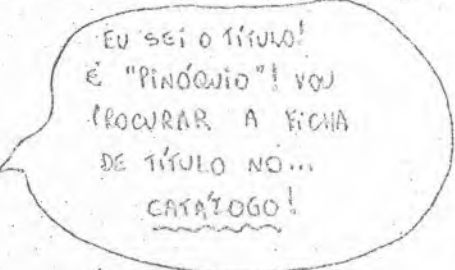 EU SEI O TÍTULO!
É "PINÓQUIO"! VOU
PROCURAR A FICHA
DE TÍTULO NO...
CATÁLOGO!